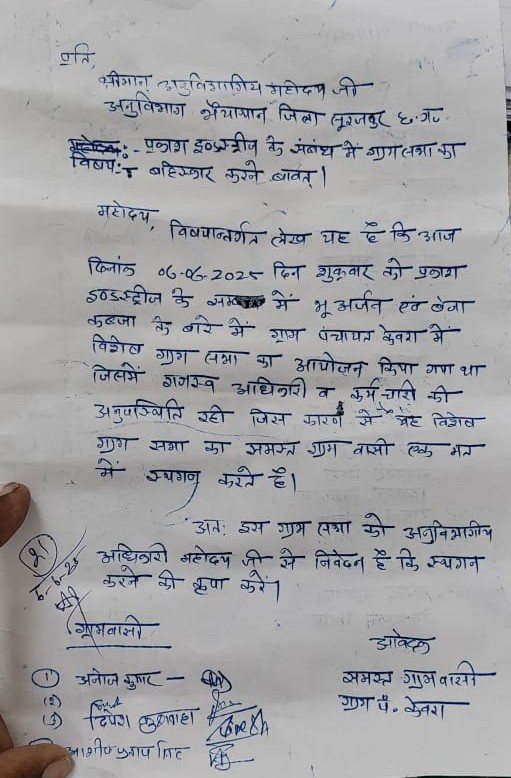 प्रति,
श्रीमान अनुविभागीय महोदय जी
अनुविभाग भैयाथान जिला सूरजपुर छ.ग.
विषय:- प्रकाश इण्डस्ट्रीज के संबंध में ग्राम सभा का
बहिस्कार करने बावत्।
महोदय,
विषयान्तर्गत लेख यह है कि आज
दिनांक 06-06-2025 दिन शुक्रवार को प्रकाश
इण्डस्ट्रीज के में भू अर्जन एवं बेजा
कबजा के बारे में ग्राम पंचायत केवरा में
विशेष ग्राम सभा का आयोजन किया गया था
जिसमें राजस्व अधिकारी व कर्मचारी की
अनुपस्थिति रही जिस कारण से यह विशेष
ग्राम सभा का समस्त ग्राम वासी एक मत
में स्थगन करते है।
अत: इस ग्राम सभा को अनुविभागीय
अधिकारी महोदय जी से निवेदन है कि स्थगन
करने की कृपा करें।
21
6-6-25
ग्रामवासी
आवेदक
समस्त ग्राम वासी
ग्राम पं. केवरा
(1) अनोज कुमार -
(2)
(3) दिपेश कुशवाहा
आशीष प्रताप सिंह